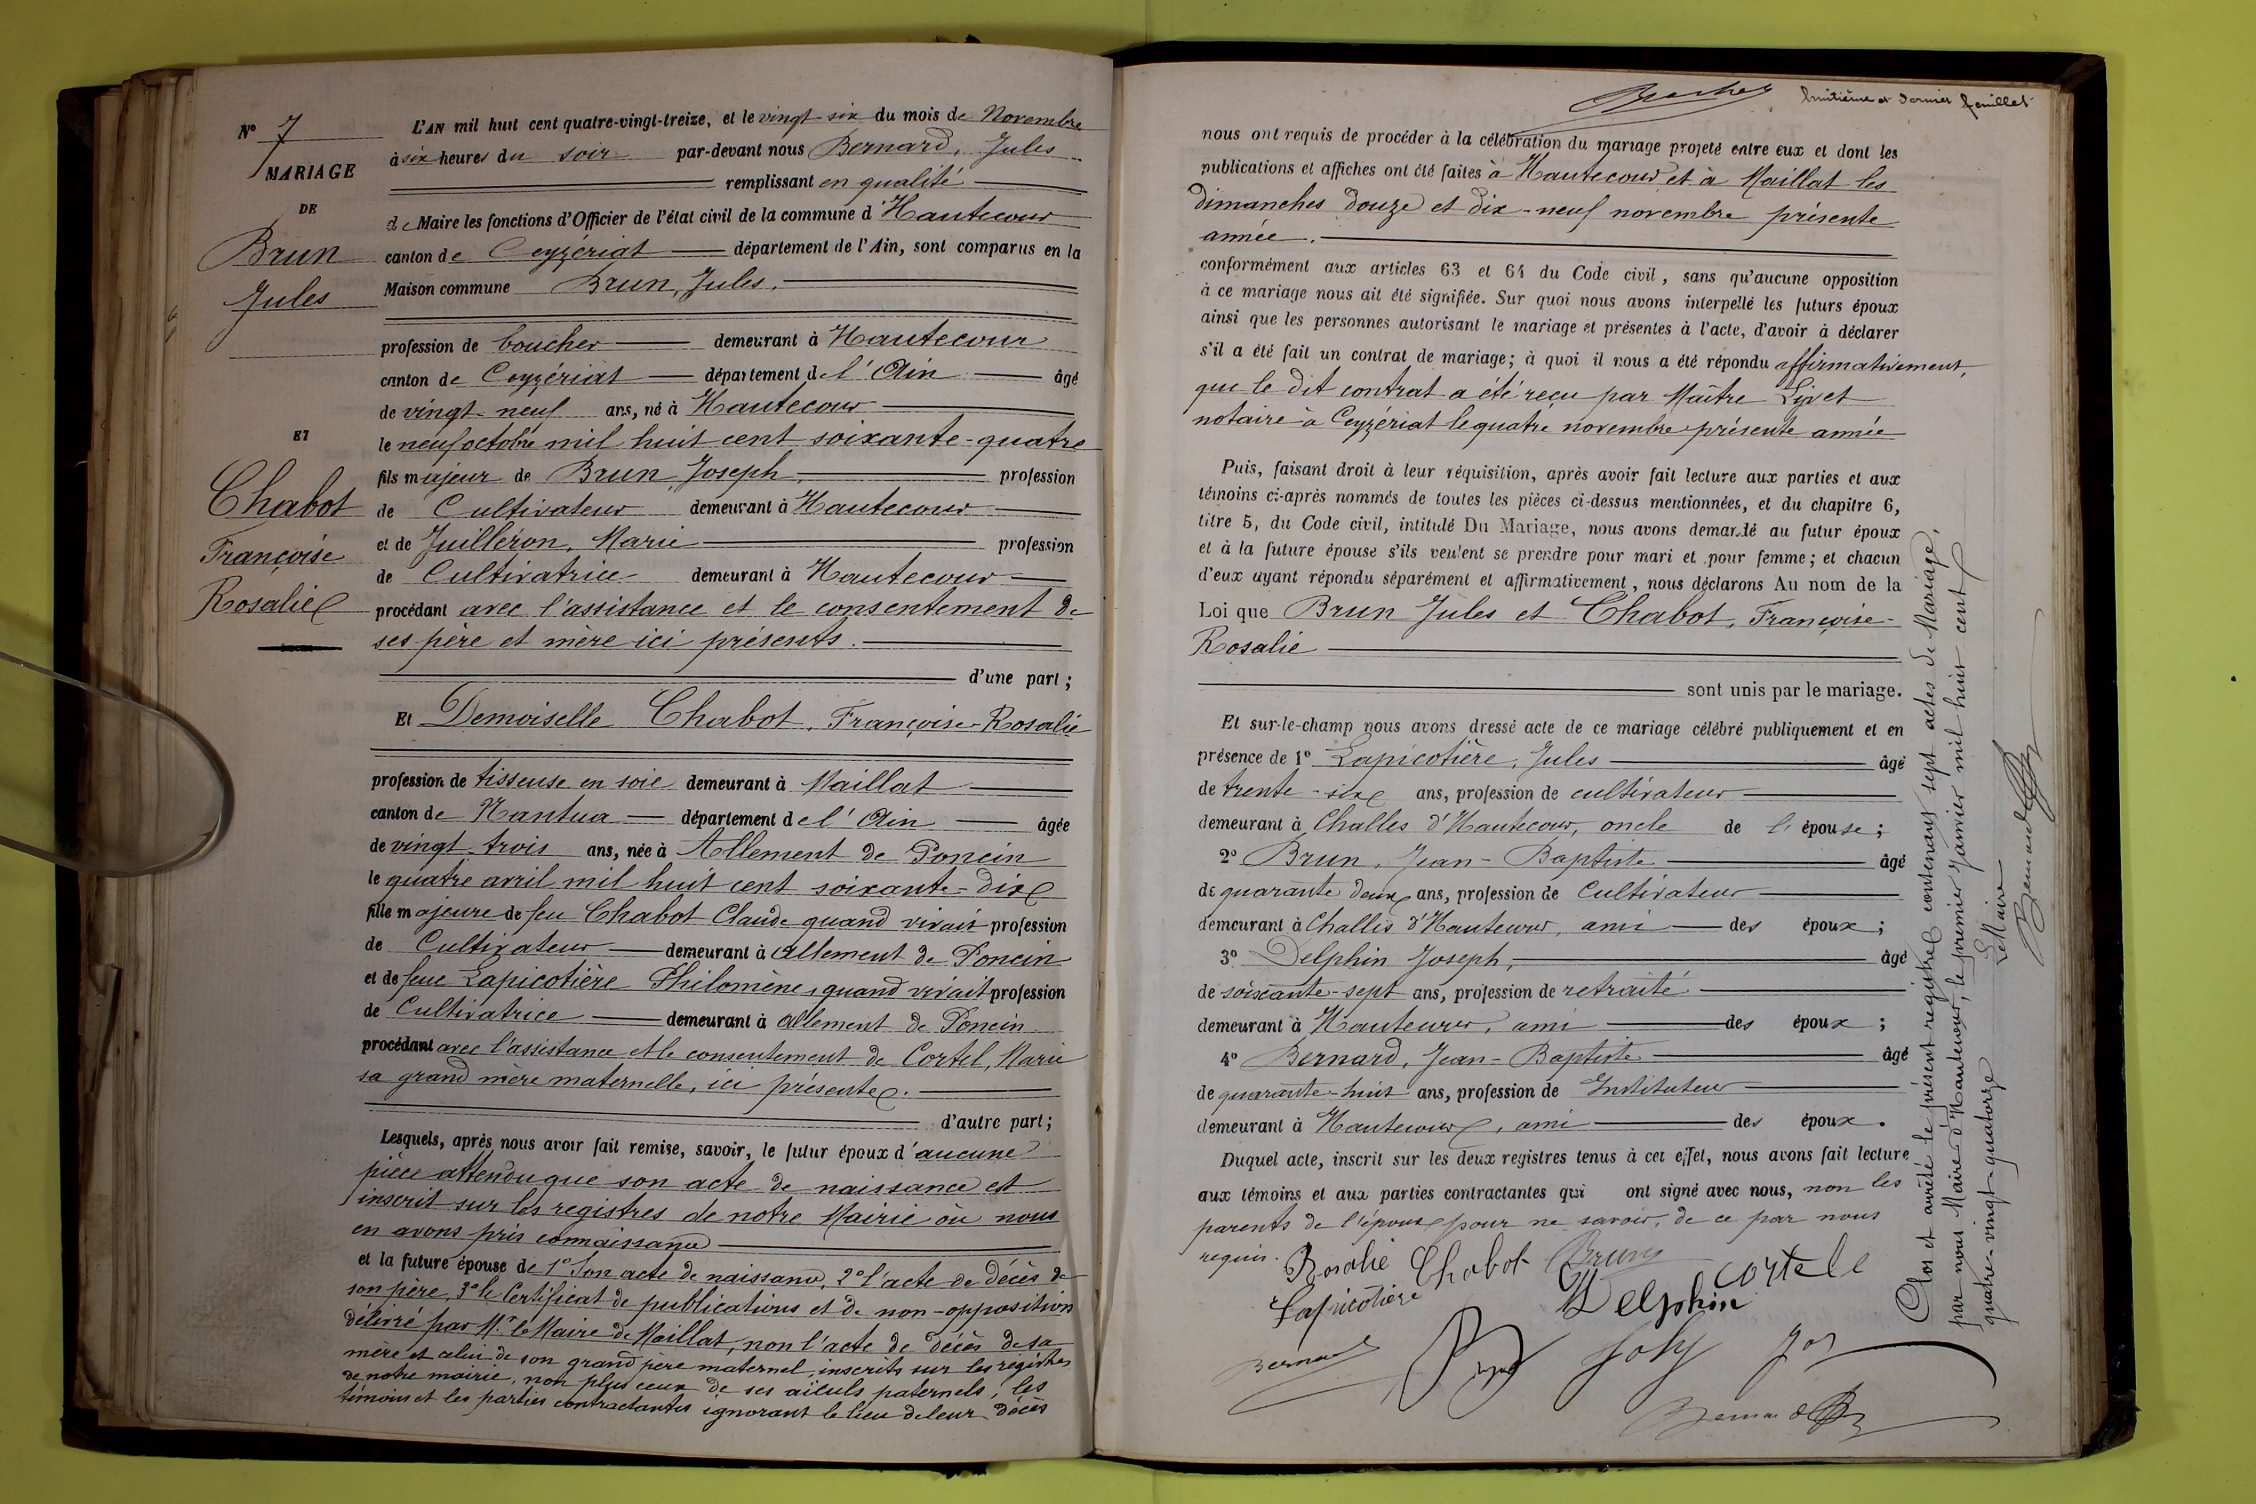 N° 7
MARIAGE
DE
Brun
Jules
ET
Chabot
Françoise
Rosalie
L'AN mil huit cent quatre-vingt-treize, et le vingt-six du mois de Novembre
à six heures du soir par-devant nous Bernard, Jules
remplissant en qualité
de Maire les fonctions d'Officier de l'état civil de la commune d'Hautecour
canton de Ceyzériat département de l'Ain, sont comparus en la
Maison commune Brun, Jules,
profession de boucher demeurant à Hautecour
canton de Ceyzériat département de l'Ain âgé
de vingt-neuf ans, né à Hautecour
le neuf octobre mil huit cent soixante-quatre
fils majeur de Brun Joseph profession
de Cultivateur demeurant à Hautecour
et de Juilléron, Marie profession
de Cultivatrice demeurant à Hautecour
procédant avec l'assistance et le consentement de
ses père et mère ici présents.
d'une part;
Et Demoiselle Chabot, Françoise-Rosalie
profession de tisseuse en soie demeurant à Maillat
canton de Nantua département de l'Ain âgée
de vingt-trois ans, née à Allement de Poncin
le quatre avril mil huit cent soixante-dix
fille majeure de feu Chabot Claude quand vivait profession
de Cultivateur demeurant à allement de Poncin
et de feue Lapicotière Philomène, quand vivait profession
de Cultivatrice demeurant à allement de Poncin
procédant avec l'assistance et le consentement de Cortel, Marie
sa grand mère maternelle, ici présente.
d'autre part;
Lesquels, après nous avoir fait remise, savoir, le futur époux d'aucune
pièce attendu que son acte de naissance est
inscrit sur les registres de notre Mairie où nous
en avons pris connaissance
et la future épouse de 1° Son acte de naissance, 2° l'acte de décès de
son père, 3° le Certificat de publications et de non-opposition
délivré par Mr le Maire de Maillat, non l'acte de décès de sa
mère et celui de son grand père maternel, inscrits sur les registres
de notre mairie, non plus ceux de ses aïeuls paternels, les
témoins et les parties contractantes ignorant le lieu de leur décès
huitième et dernier feuillet
nous ont requis de procéder à la célébration du mariage projeté entre eux et dont les
publications et affiches ont été faites à Hautecour et à Maillat les
dimanches douze et dix-neuf novembre présente
année.
conformément aux articles 63 et 64 du Code civil, sans qu'aucune opposition
à ce mariage nous ait été signifiée. Sur quoi nous avons interpellé les futurs époux
ainsi que les personnes autorisant le mariage et présentes à l'acte, d'avoir à déclarer
s'il a été fait un contrat de mariage; à quoi il nous a été répondu affirmativement,
que le dit contrat a été reçu par Maître Livet
notaire à Ceyzériat le quatre novembre présente année
Puis, faisant droit à leur réquisition, après avoir fait lecture aux parties et aux
témoins ci-après nommés de toutes les pièces ci-dessus mentionnées, et du chapitre 6,
titre 5, du Code civil, intitulé Du Mariage, nous avons demandé au futur époux
et à la future épouse s'ils veulent se prendre pour mari et pour femme; et chacun
d'eux ayant répondu séparément et affirmativement, nous déclarons Au nom de la
Loi que Brun Jules et Chabot, Françoise-
Rosalie
sont unis par le mariage.
Et sur-le-champ nous avons dressé acte de ce mariage célébré publiquement et en
présence de 1° Lapicotière, Jules âgé
de trente-six ans, profession de cultivateur
demeurant à Challes d'Hautecour, oncle de l'épouse;
2° Brun, Jean-Baptiste âgé
de quarante deux ans, profession de Cultivateur
demeurant à Challes d'Hautecour, ami des époux;
3° Delphin Joseph, âgé
de soixante-sept ans, profession de retraité
demeurant à Hautecour, ami des époux;
4° Bernard, Jean-Baptiste âgé
de quarante-huit ans, profession de Instituteur
demeurant à Hautecour, ami des époux.
Duquel acte, inscrit sur les deux registres tenus à cet effet, nous avons fait lecture
aux témoins et aux parties contractantes qui ont signé avec nous, non les
parents de l'époux pour ne savoir, de ce par nous
requis.
Rosalie Chabot Brun
Cortele
Lapicotière
Delphin
Bernard
Joly
Bernard
Clos et arrêté le présent registre contenant sept actes de Mariage,
par nous Maire d'Hautecour, le premier Janvier mil huit cent
quatre-vingt-quatorze
Le Maire
Bernard